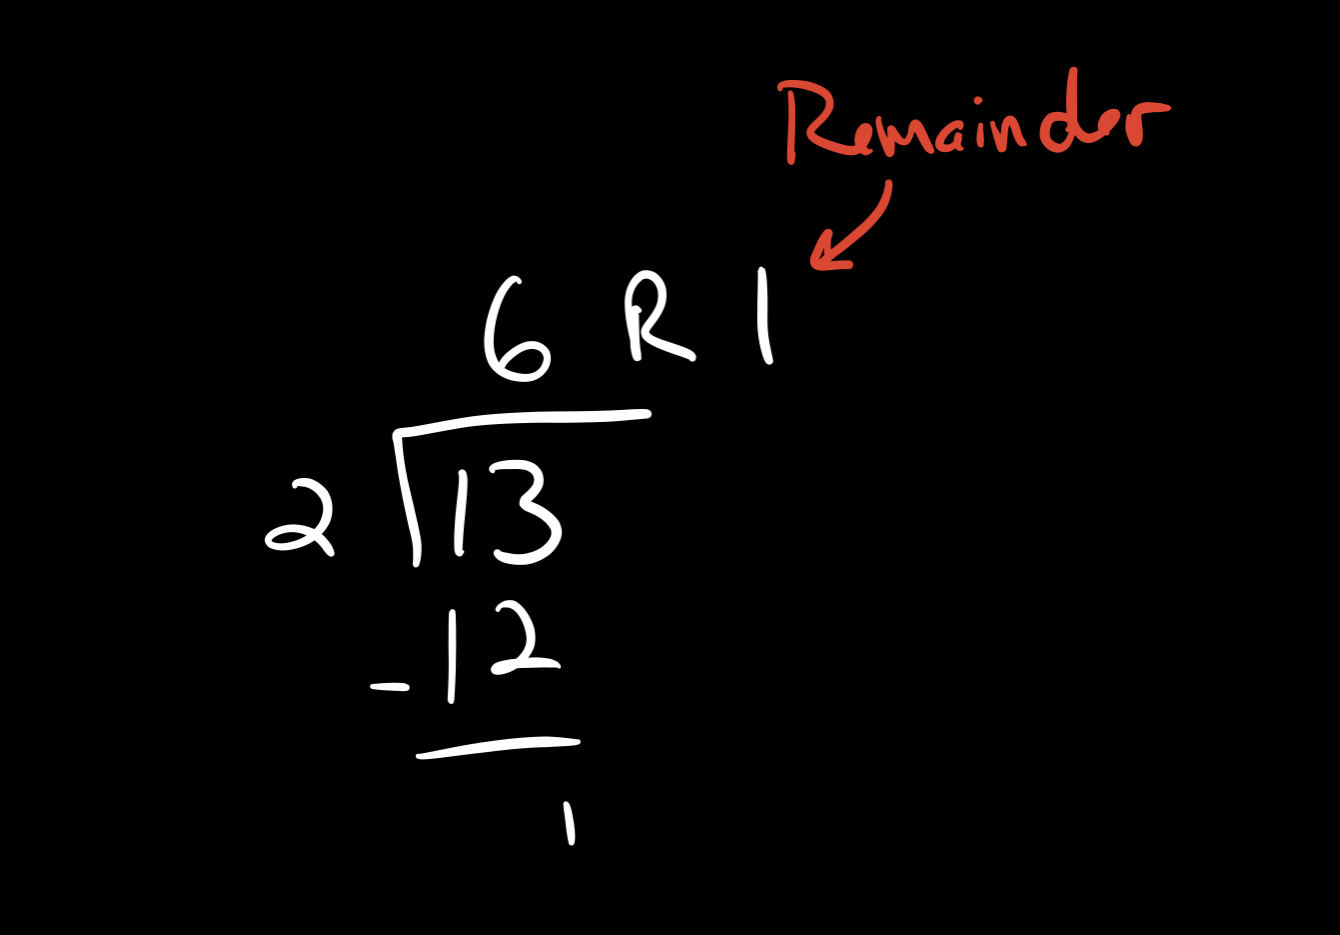 Remainder
6 R 1
2 13
-12
1